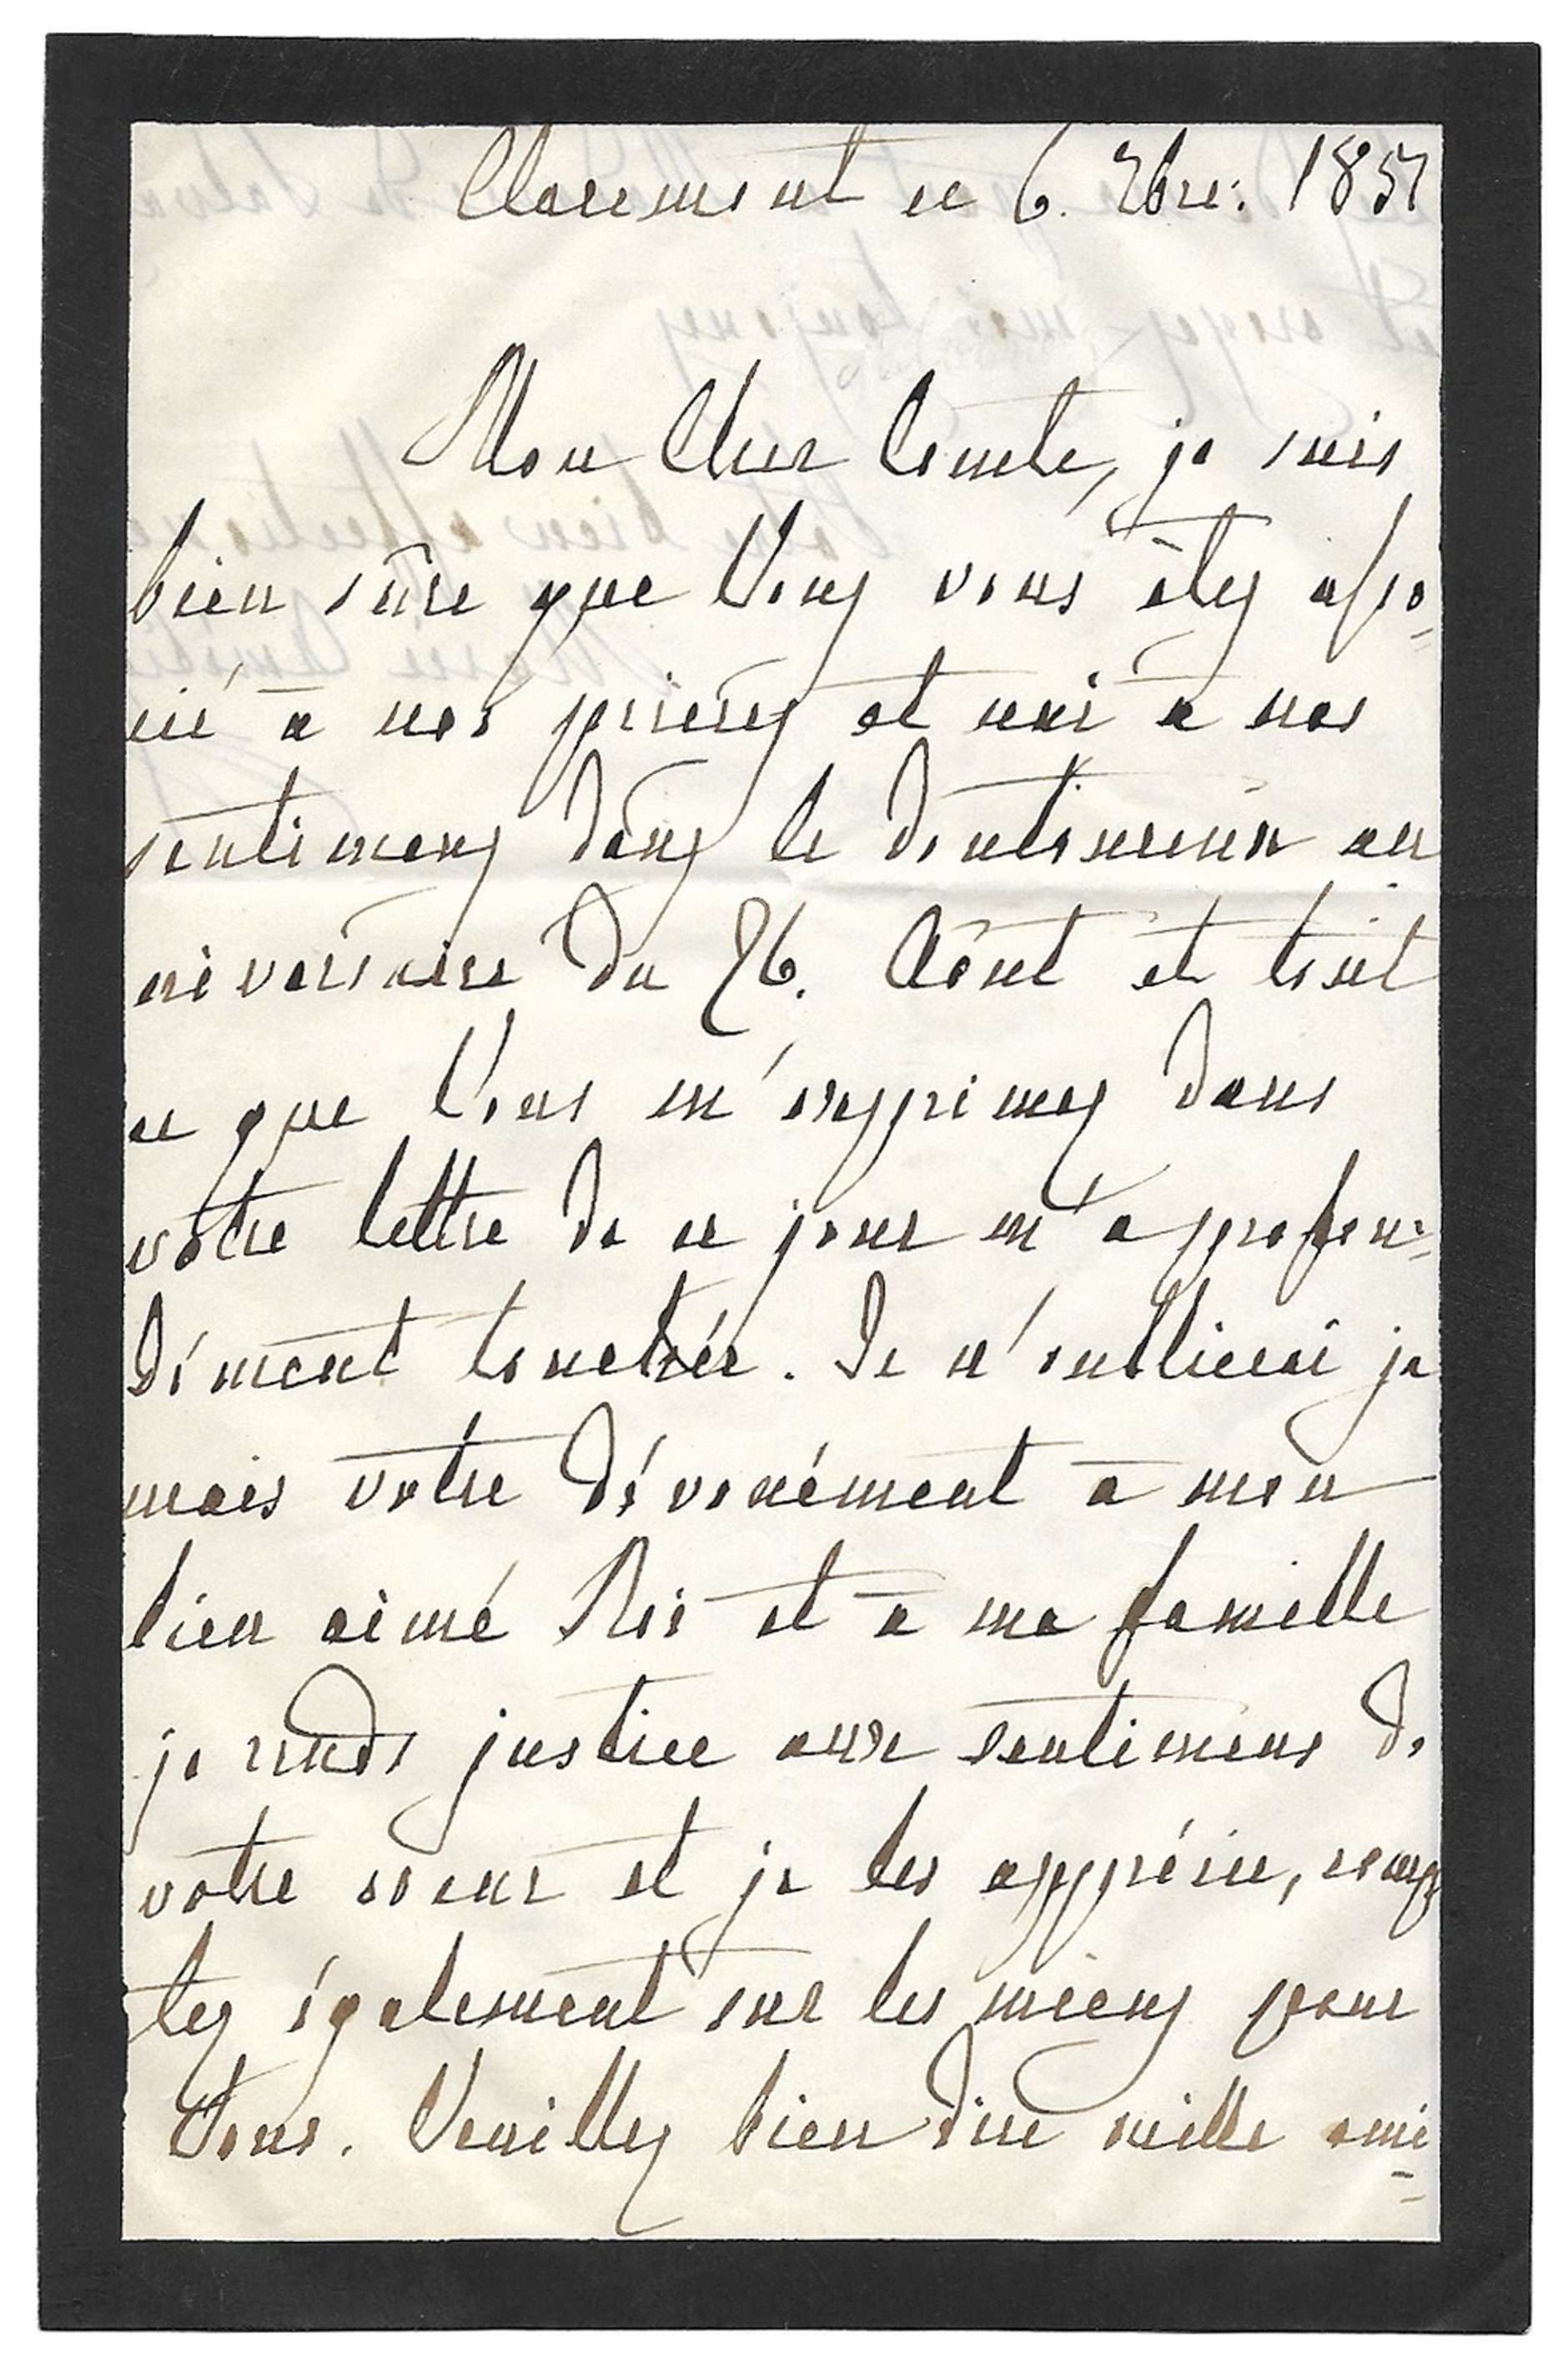 Claremont ce 6. 7bre: 1851
Mon Cher Comte, je suis
bien sûre que Vous vous êtes asso=
cié à nos prières et uni à nos
sentimens dans le douloureux an
niversaire du 26. Août et tout
ce que Vous m'exprimez dans
votre lettre de ce jour m'a profon=
dément touchée. Je n'oublierai ja
mais votre dévouement à mon
bien aimé Roi et à ma famille
je rends justice aux sentimens de
votre cœur et je les apprécie, comp
tez également sur les miens pour
Vous. Veuillez bien dire mille ami
=